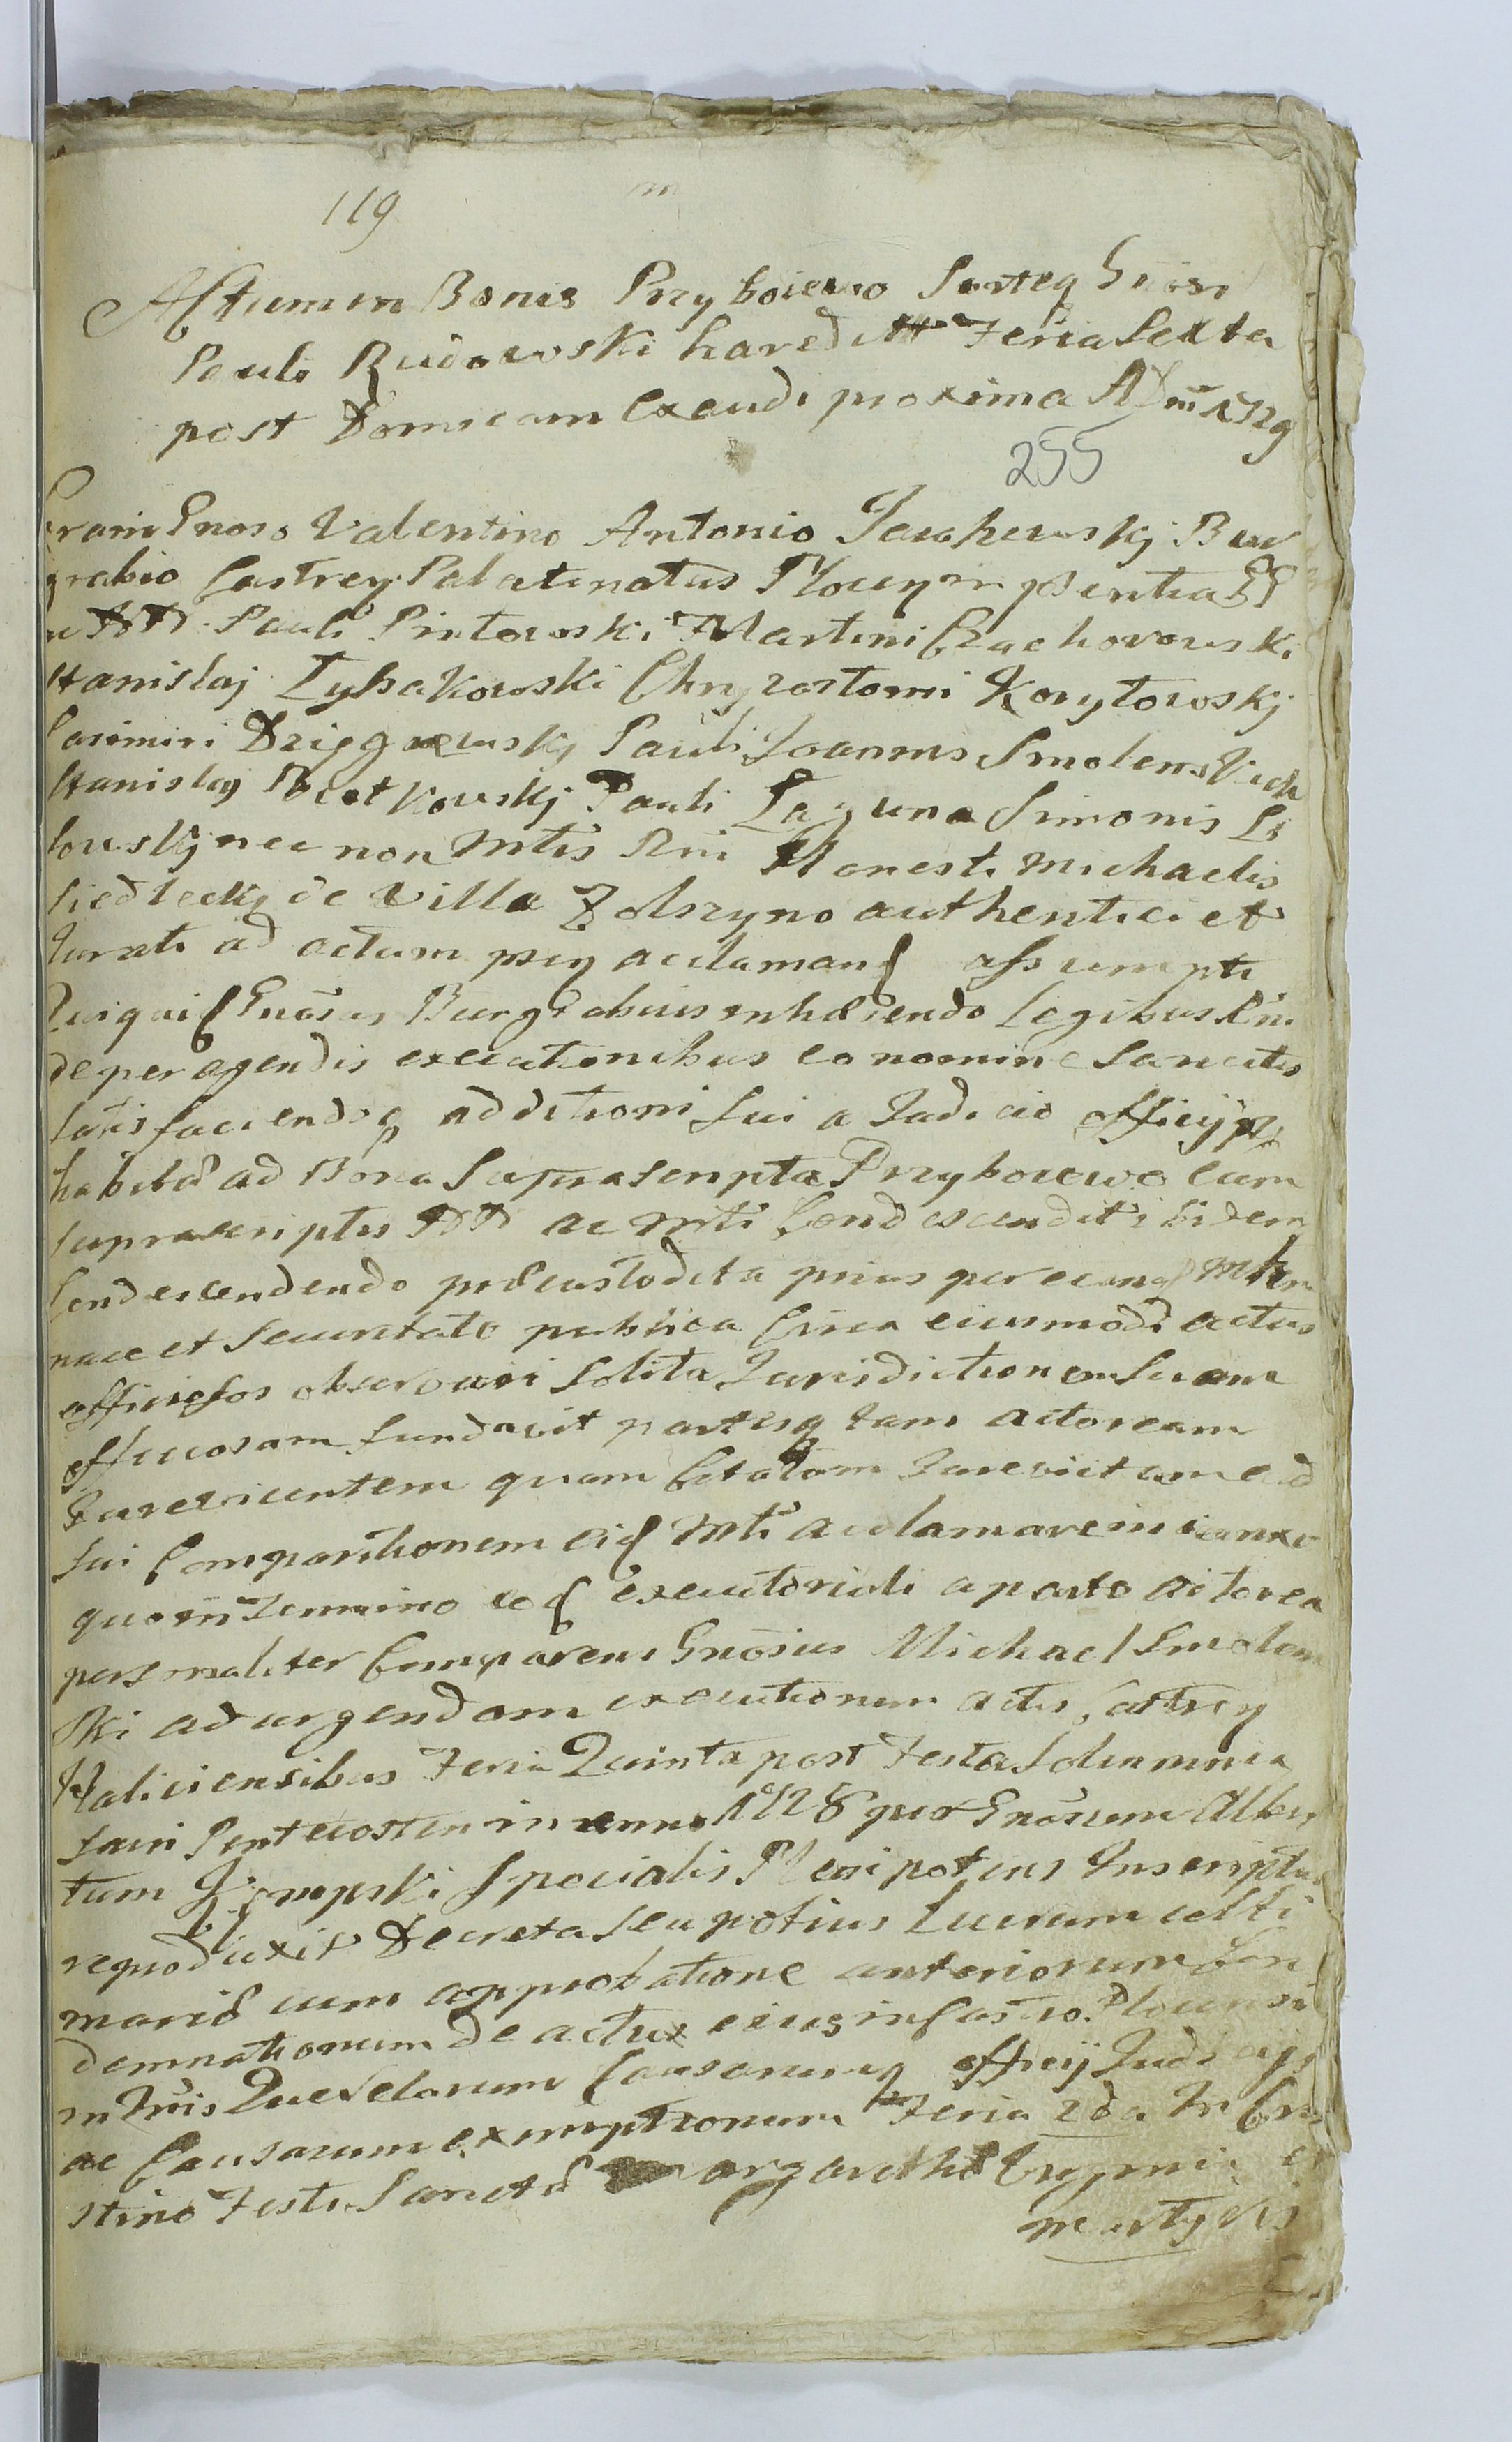 119
Actum in Bonis Przyboiewo Sorteq Gnosi
Pauli Rudowski haered Feria Sexta
post Domicam Exaudi proxima ADni 1729
255
Coram Gnoso Valentino Antonio Bur
grabio Castren Palatinatus Plocen in pSentia GG
u NN Pauli Pintowski Martini Czachorowski
Stanislaj Lysakowski Chryzostomi Korytowskj
Casimiri Pauli Joannis Smolenski
Stanislaj Pauli Laguna Simonis Li
lowskj nec non Mtis Rni Honesti Michaelis
Siedleckj de Villa Zdszyno authentici et
Jurati ad actum pSen acclamand assumpti
Quiquid Gnosus Burgrabius inhaerendo Legibus Rni
de peragendis executionibus eo nomine Sancitis
Satisfaciendoq additioni sui a Judicio officij pti
habita ad Bona Suprascripta Przyboiewo cum
suprascriptis NN ac Mti Condescendit ibidem
Condescendendo praecustodita prius per eund Mtrem
pace et Securitate publica Circa eiusmodi actus
officiosos observari solita Jurisdictionem Suam
officiosam fundavit partesq tam actoream
Jurevicentem quam Citatam Jurevictam ad
sui Comparitionem eid Mti acclamare iniunxit
quo in Termino eod executoriali a parte actorea
personaliter Comparens Gnosus Michael Smolen
ski ad urgendam executionem actis Castren
Haliciensibus Feria Quinta post Festa Solemnia
Sacri Pentecosten in anno 1728 per Gnosum Alber
tum Specialis Plenipotens Inscriptus
reproduxit Decreta seu potius Lucrum ulti
marie cum approbatione anteriorum Con
demnationum de actu eius in Castro Plocensi
in Tris Querelarum Causarumq officij Judicijs
ac Causarum exemptionum Feria 2da in Cra
stino Festi Sanctae Margarethae Virginis et
martyris